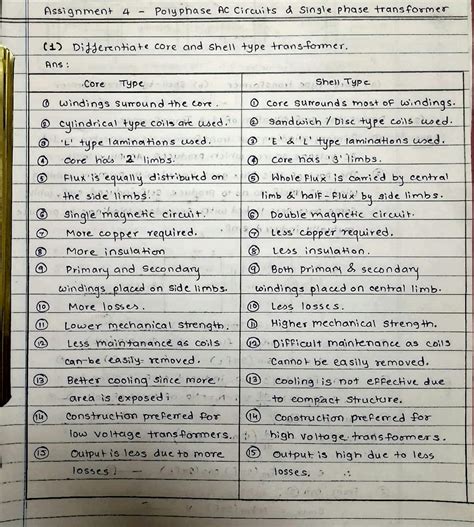 Assignment 4 - Polyphase AC Circuits & Single phase transformer
(1) Differentiate core and shell type transformer.
Ans:
Core Type
① Windings surround the core.
② Cylindrical type coils are used.
③ 'L' type laminations used.
④ Core has '2' limbs.
⑤ Flux is equally distributed on
the side limbs.
⑥ Single magnetic circuit.
⑦ More copper required.
⑧ More insulation
⑨ Primary and Secondary
windings placed on side limbs.
⑩ More losses.
⑪ Lower mechanical strength.
⑫ Less maintanance as coils
can be easily removed.
⑬ Better cooling since more
area is exposed.
⑭ Construction preferred for
low voltage transformers.
⑮ Output is less due to more
losses.
Shell Type
① Core surrounds most of windings.
② Sandwich / Disc type coils used.
③ 'E' & 'L' type laminations used.
④ Core has '3' limbs.
⑤ Whole flux is carried by central
limb & half-flux by side limbs.
⑥ Double magnetic circuit.
⑦ Less copper required.
⑧ Less insulation.
⑨ Both primary & secondary
windings placed on central limb.
⑩ Less losses.
⑪ Higher mechanical strength.
⑫ Difficult maintenance as coils
Cannot be easily removed.
⑬ Cooling is not effective due
to compact structure.
⑭ Construction preferred for
high voltage transformers.
⑮ Output is high due to less
losses.